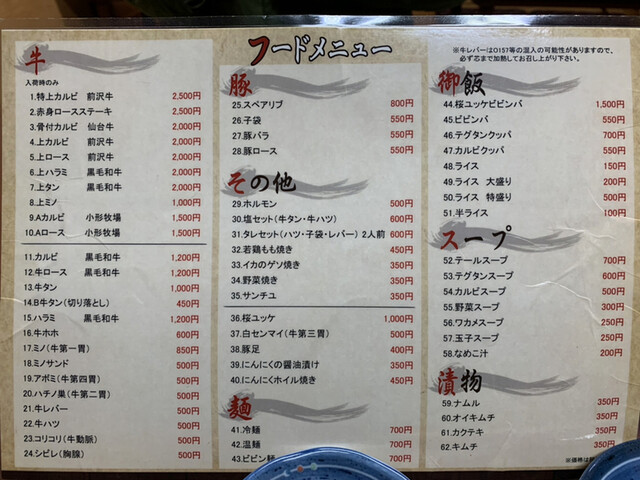 フードメニュー
牛
入荷時のみ
1.特上カルビ 前沢牛 2,500円
2.赤身ロースステーキ 2,500円
3.骨付カルビ 仙台牛 2,000円
4.上カルビ 前沢牛 2,000円
5.上ロース 前沢牛 2,000円
6.上ハラミ 黒毛和牛 2,000円
7.上タン 黒毛和牛 2,000円
8.上ミノ 1,000円
9.Aカルビ 小形牧場 1,500円
10.Aロース 小形牧場 1,500円
11.カルビ 黒毛和牛 1,200円
12.牛ロース 黒毛和牛 1,200円
13.牛タン 1,000円
14.B牛タン(切り落とし) 450円
15.ハラミ 黒毛和牛 1,200円
16.牛ホホ 600円
17.ミノ(牛第一胃) 850円
18.ミノサンド 500円
19.アボミ(牛第四胃) 500円
20.ハチノ巣(牛第二胃) 500円
21.牛レバー 500円
22.牛ハツ 500円
23.コリコリ(牛動脈) 500円
24.シビレ(胸腺) 500円
豚
25.スペアリブ 800円
26.子袋 550円
27.豚バラ 550円
28.豚ロース 550円
その他
29.ホルモン 500円
30.塩セット(牛タン・牛ハツ) 600円
31.タレセット(ハツ・子袋・レバー) 2人前 600円
32.若鶏もも焼き 450円
33.イカのゲソ焼き 350円
34.野菜焼き 350円
35.サンチュ 350円
36.桜ユッケ 1,000円
37.白センマイ(牛第三胃) 500円
38.豚足 400円
39.にんにくの醤油漬け 350円
40.にんにくホイル焼き 450円
麺
41.冷麺 700円
42.温麺 700円
43.ビビン麺 700円
※牛レバーはO157等の混入の可能性がありますので、
必ず芯まで加熱してお召し上がり下さい。
御飯
44.桜ユッケビビンバ 1,500円
45.ビビンバ 550円
46.テグタンクッパ 700円
47.カルビクッパ 550円
48.ライス 150円
49.ライス 大盛り 200円
50.ライス 特盛り 500円
51.半ライス 100円
スープ
52.テールスープ 700円
53.テグタンスープ 600円
54.カルビスープ 500円
55.野菜スープ 300円
56.ワカメスープ 250円
57.玉子スープ 250円
58.なめこ汁 200円
漬物
59.ナムル 350円
60.オイキムチ 350円
61.カクテキ 350円
62.キムチ 350円
※価格は